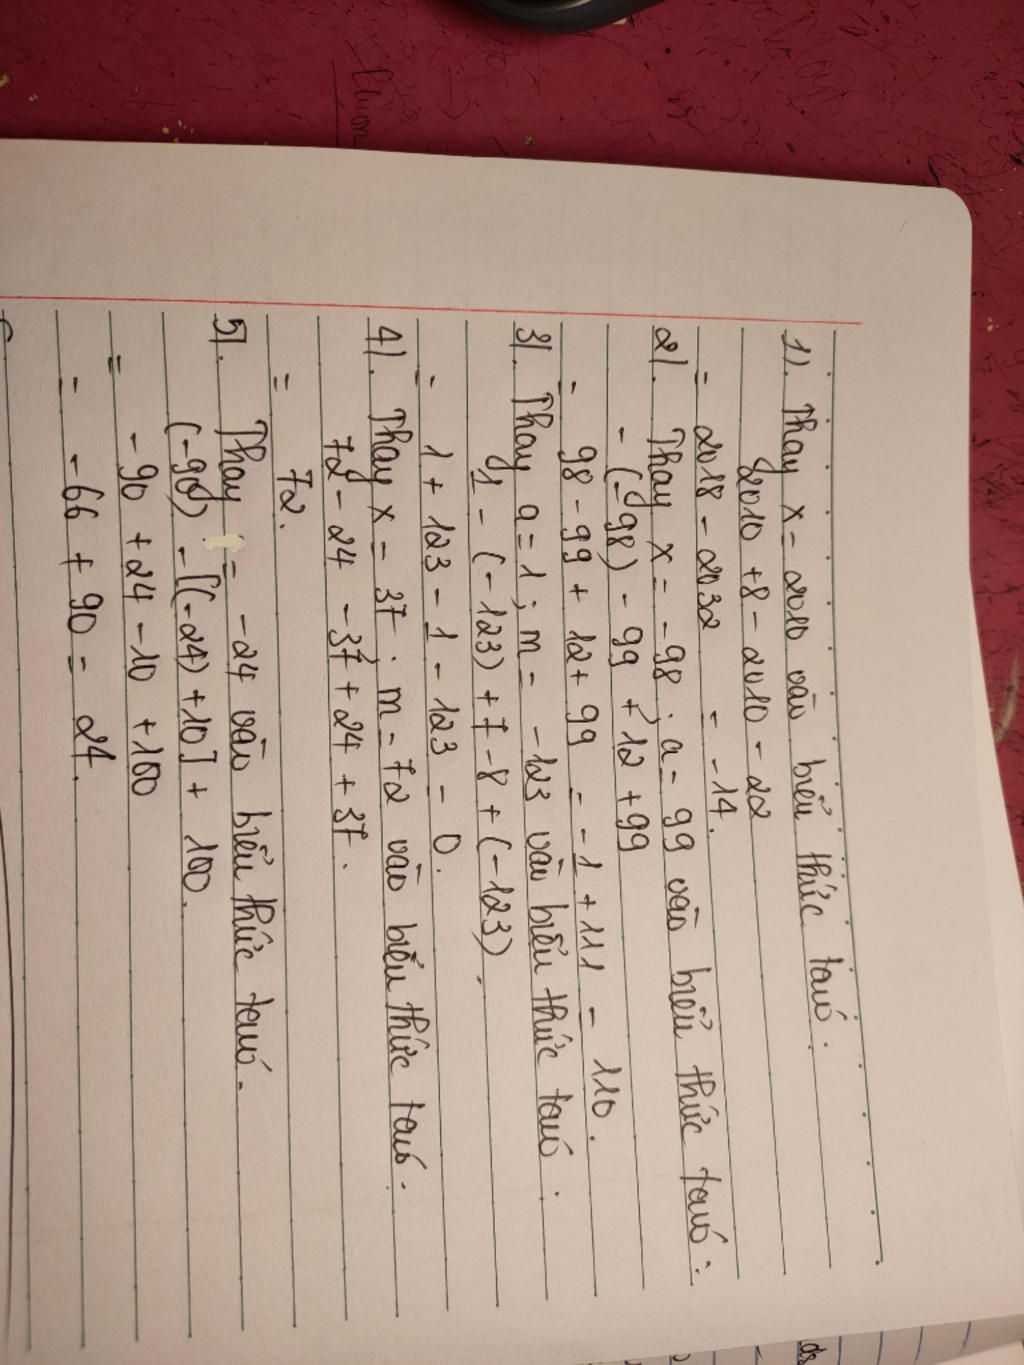 1). Thay x = 2010 vào biểu thức ta có:
2010 + 8 - 2010 - 22
= 2018 - 2032 = -14.
2). Thay x = -98; a = 99 vào biểu thức ta có:
- (-98) - 99 + 12 + 99
= 98 - 99 + 12 + 99 = -1 + 111 = 110.
3). Thay a = 1; m = -123 vào biểu thức ta có:
1 - (-123) + 7 - 8 + (-123).
= 1 + 123 - 1 - 123 = 0.
4). Thay x = 37; m = 72 vào biểu thức ta có:
72 - 24 - 37 + 24 + 37.
= 72.
5). Thay = -24 vào biểu thức ta có:
(-90) - [(-24) + 10] + 100.
= -90 + 24 - 10 + 100
= -66 + 90 = 24.